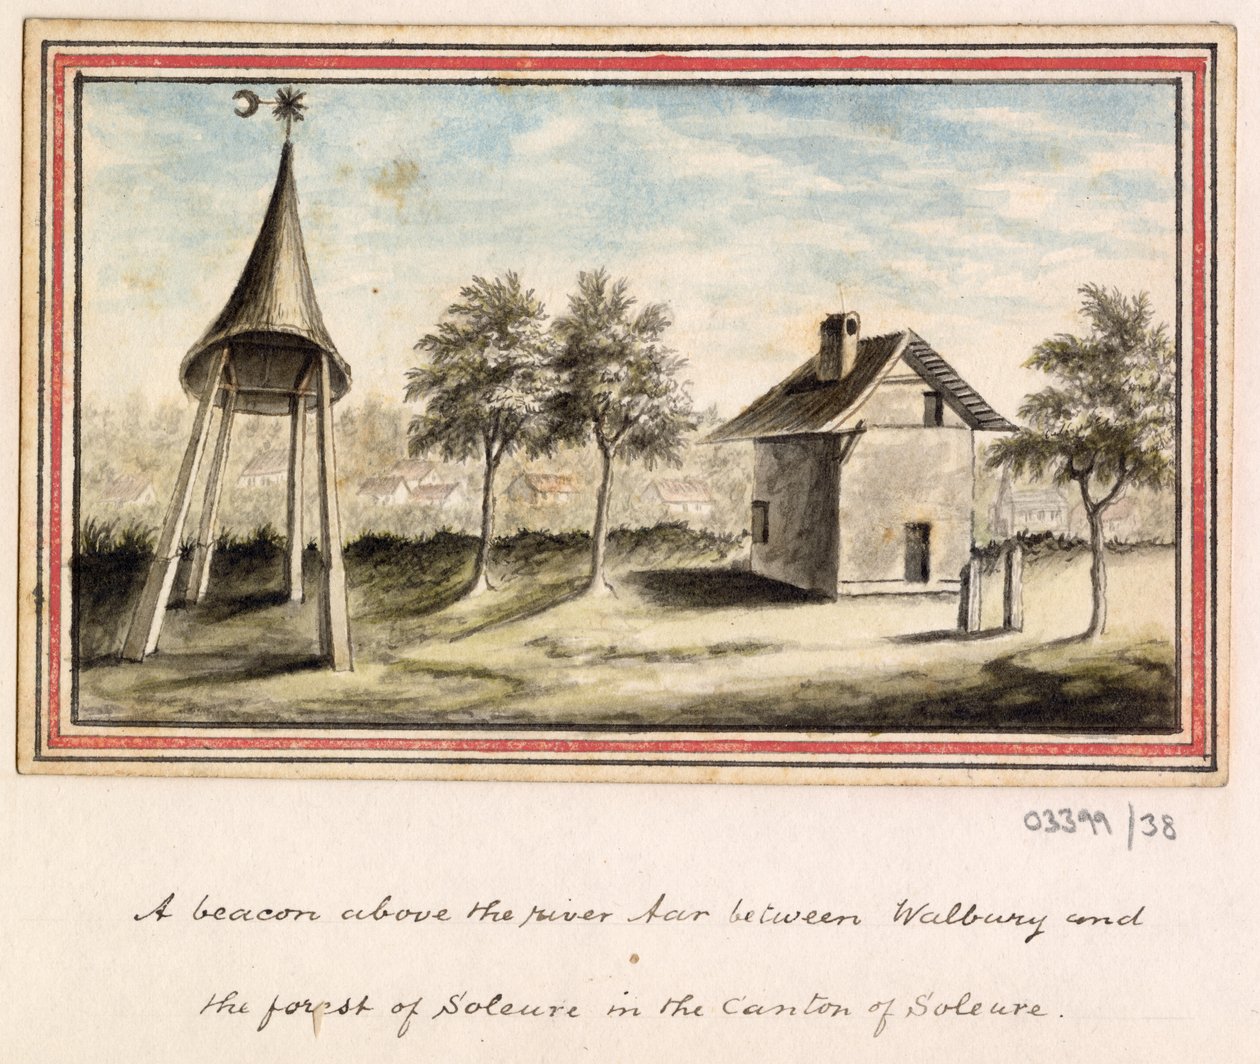 03399/38
A beacon above the river Aar between Walbury and
the forest of Soleure in the Canton of Soleure.